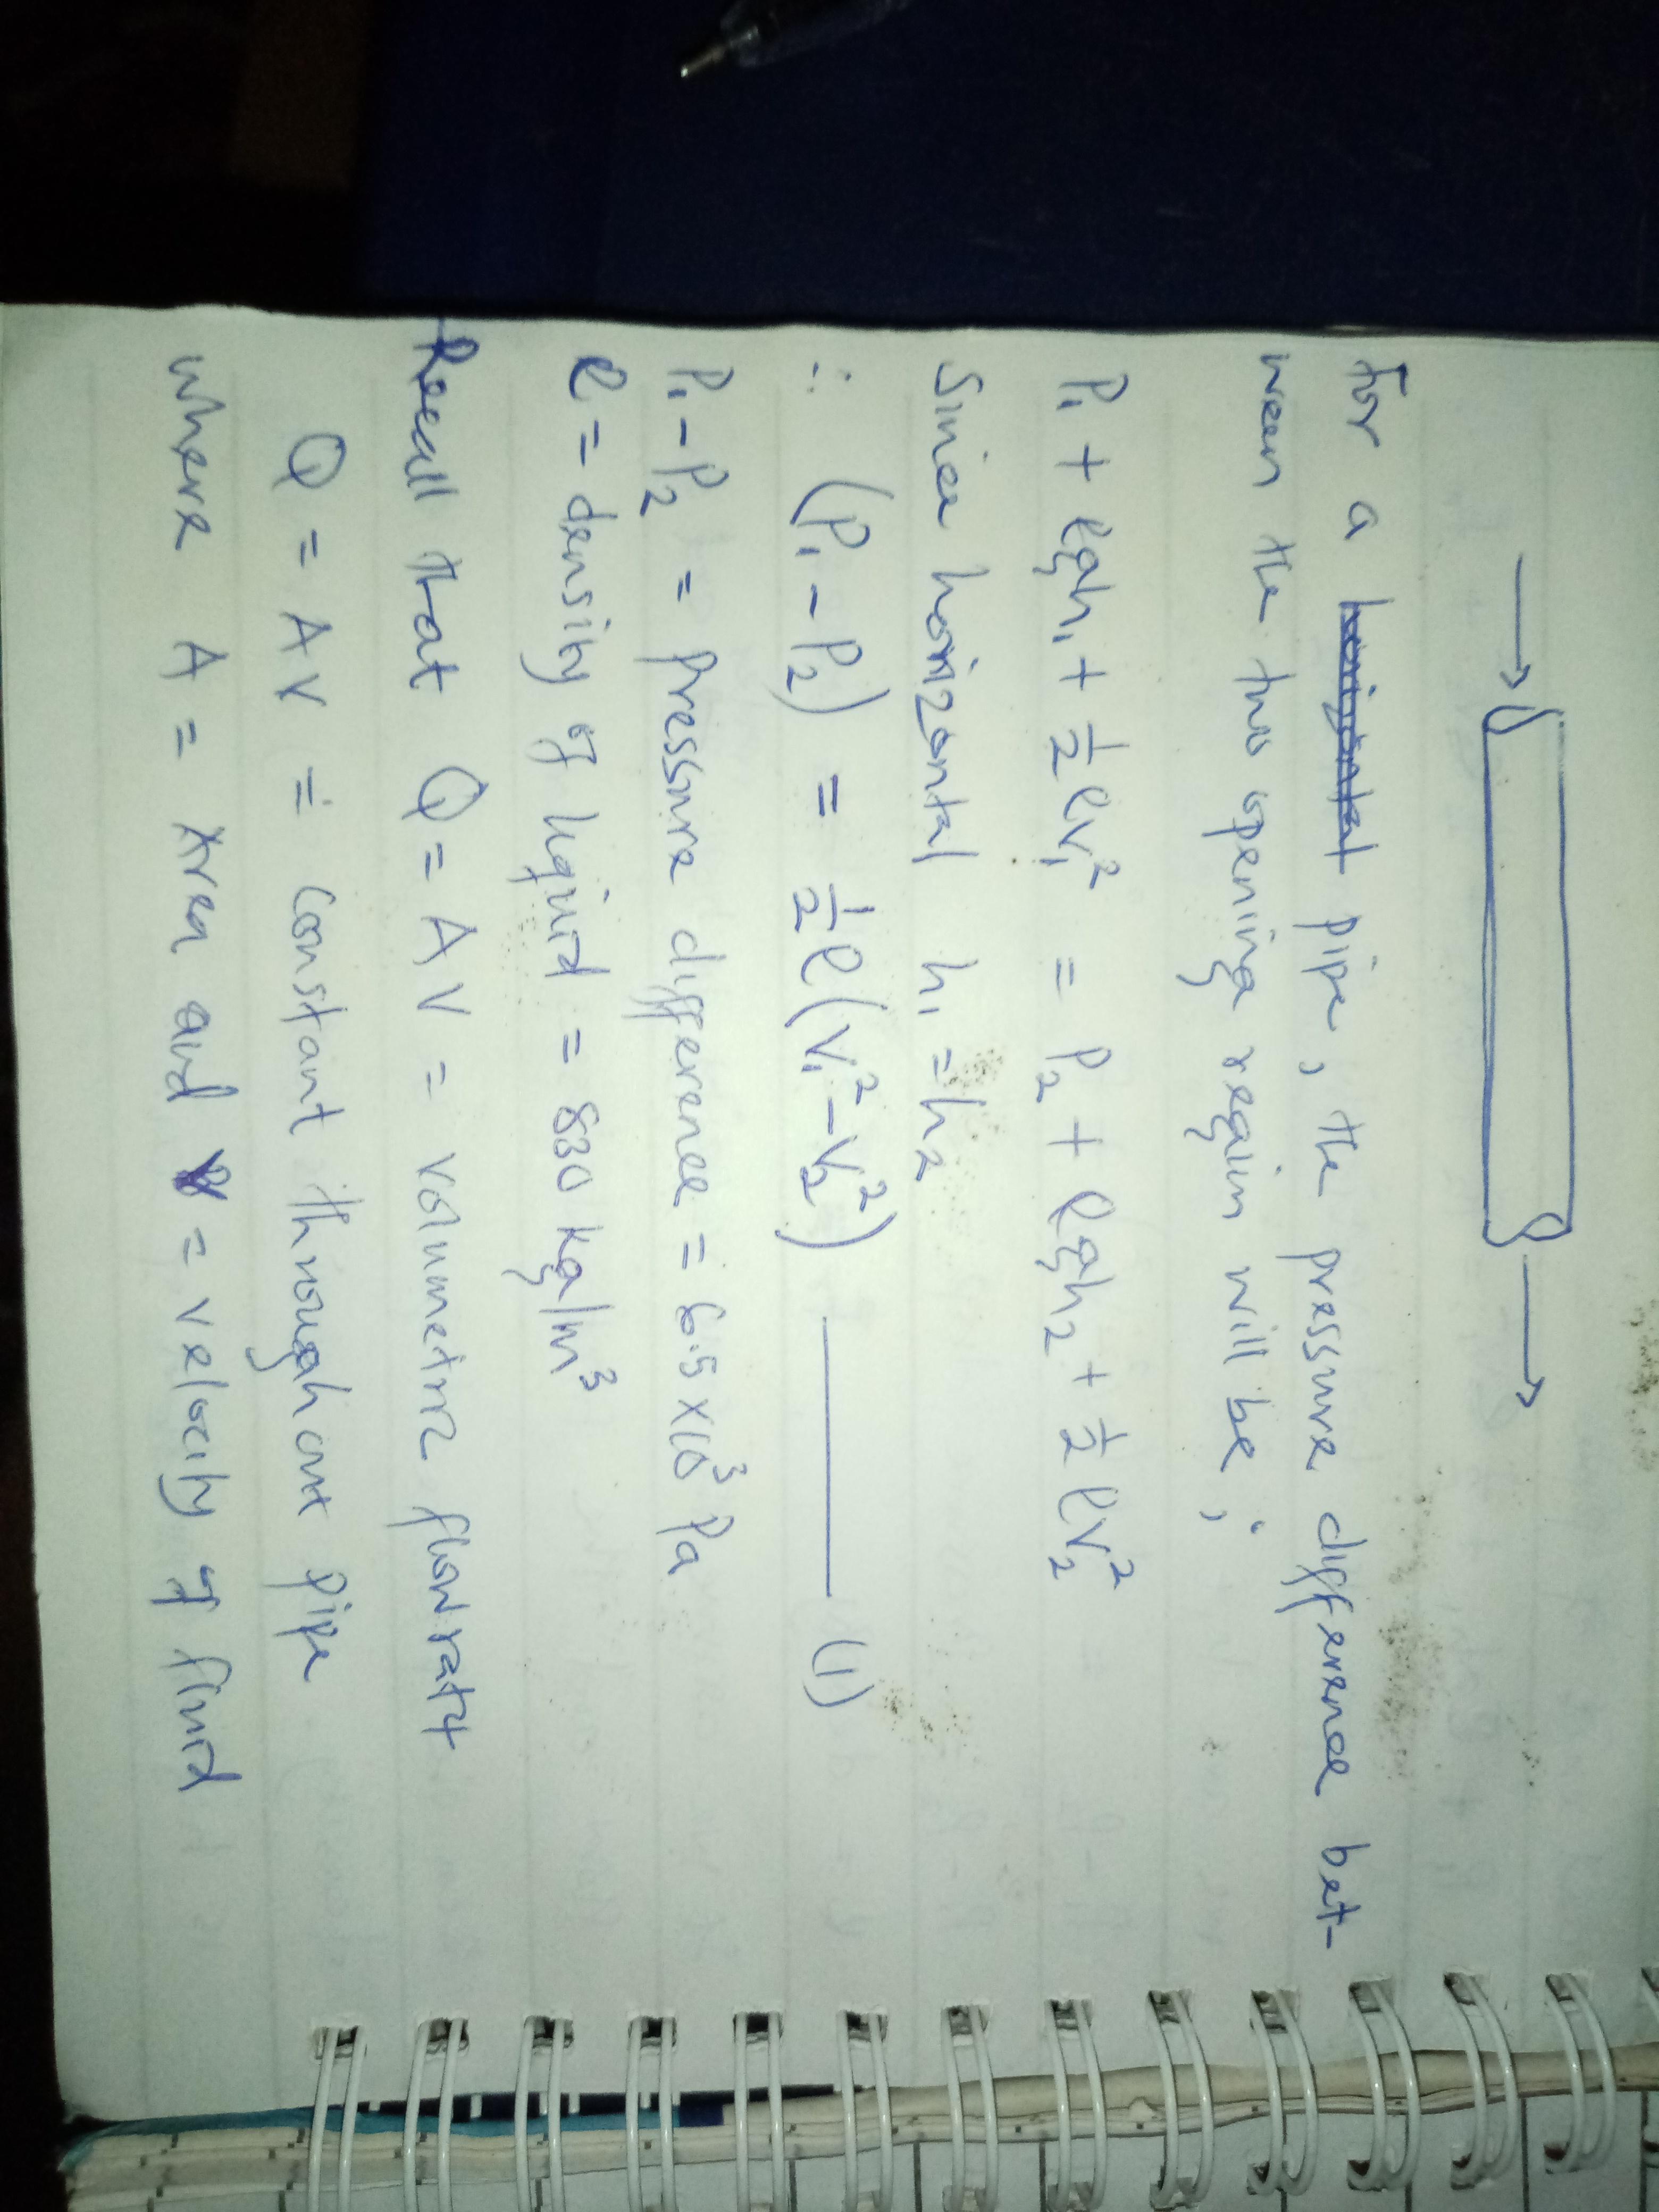 For a horizontal pipe, the pressure difference bet-
ween the two opening region will be;
P₁ + ρgh₁ + ½ρv₁² = P₂ + ρgh₂ + ½ρv₂²
Since horizontal h₁ = h₂
∴ (P₁ - P₂) = ½ρ(v₁² - v₂²) ——— (1)
P₁ - P₂ = pressure difference = 6.5 × 10³ Pa
ρ = density of liquid = 830 kg/m³
Recall that Q = AV = volumetric flow rate
Q = AV = constant throughout pipe
where A = Area and V = velocity of fluid